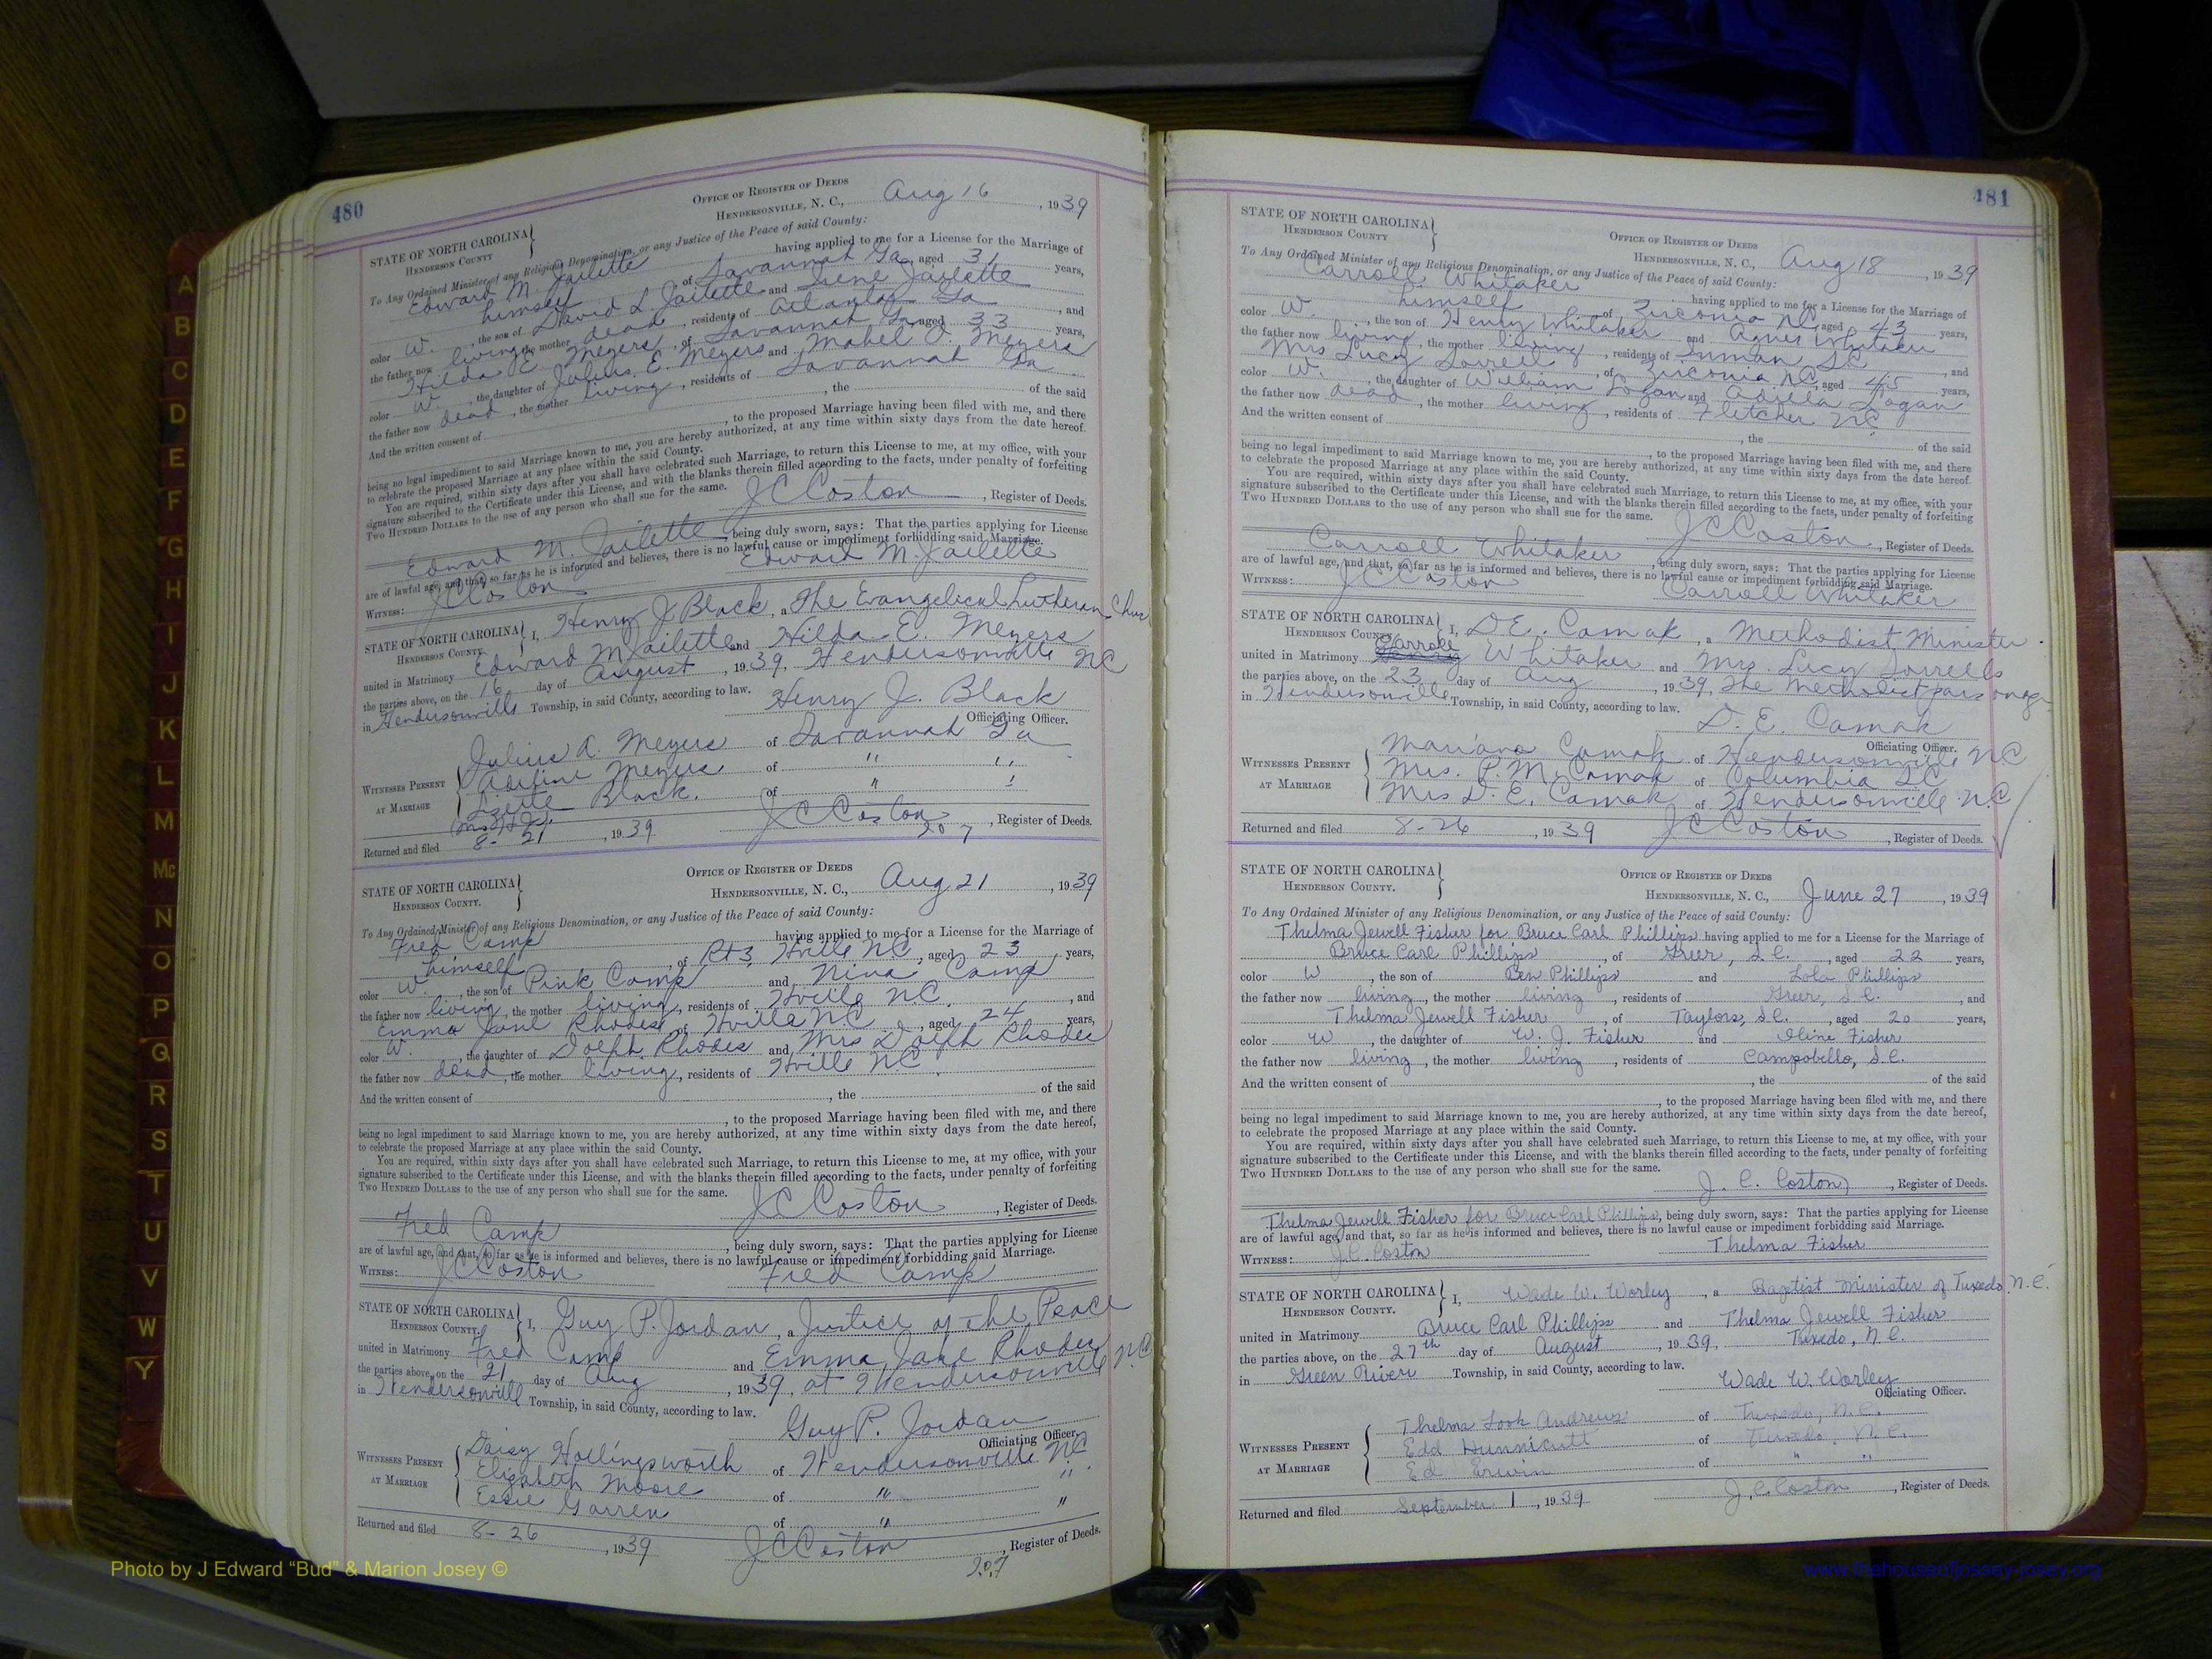 480
OFFICE OF REGISTER OF DEEDS
STATE OF NORTH CAROLINA
HENDERSON COUNTY
HENDERSONVILLE, N. C., Aug 16, 1939
To Any Ordained Minister of any Religious Denomination, or any Justice of the Peace of said County:
Edward M. Jailette having applied to me for a License for the Marriage of
himself of Savannah Ga, aged 31 years,
color W., the son of David L. Jailette and Irene Jailette
the father now living, the mother dead, residents of Atlanta Ga, and
Hilda E. Meyers, of Savannah Ga, aged 33 years,
color W, the daughter of Julius E. Meyers and Mabel O. Meyers
the father now dead, the mother living, residents of Savannah Ga
And the written consent of , the of the said
, to the proposed Marriage having been filed with me, and there
being no legal impediment to said Marriage known to me, you are hereby authorized, at any time within sixty days from the date hereof.
to celebrate the proposed Marriage at any place within the said County.
You are required, within sixty days after you shall have celebrated such Marriage, to return this License to me, at my office, with your
signature subscribed to the Certificate under this License, and with the blanks therein filled according to the facts, under penalty of forfeiting
TWO HUNDRED DOLLARS to the use of any person who shall sue for the same.
J C Coston, Register of Deeds.
Edward M. Jailette, being duly sworn, says: That the parties applying for License
are of lawful age, and that, so far as he is informed and believes, there is no lawful cause or impediment forbidding said Marriage.
WITNESS: J C Coston Edward M. Jailette
STATE OF NORTH CAROLINA
HENDERSON COUNTY.
I, Henry J Black, a The Evangelical Lutheran
united in Matrimony Edward M Jailette and Hilda E. Meyers
the parties above, on the 16 day of August, 1939, Hendersonville NC
in Hendersonville Township, in said County, according to law.
Henry J. Black
Officiating Officer.
WITNESSES PRESENT AT MARRIAGE
Julius A. Meyers of Savannah Ga
Adeline Meyers of " "
Lizette Black. of " "
Returned and filed 8-21, 1939 J C Coston, Register of Deeds.
207
OFFICE OF REGISTER OF DEEDS
STATE OF NORTH CAROLINA
HENDERSON COUNTY.
HENDERSONVILLE, N. C., Aug 21, 1939
To Any Ordained Minister of any Religious Denomination, or any Justice of the Peace of said County:
Fred Camp having applied to me for a License for the Marriage of
himself, of Rt 3, Hville NC, aged 23 years,
color W., the son of Pink Camp and Nina Camp
the father now living, the mother living, residents of Hville NC, and
Emma Jane Rhodes of Hville NC, aged 24 years,
color W., the daughter of Dolph Rhodes and Mrs Dolph Rhodes
the father now dead, the mother living, residents of Hville NC.
And the written consent of , the of the said
, to the proposed Marriage having been filed with me, and there
being no legal impediment to said Marriage known to me, you are hereby authorized, at any time within sixty days from the date hereof,
to celebrate the proposed Marriage at any place within the said County.
You are required, within sixty days after you shall have celebrated such Marriage, to return this License to me, at my office, with your
signature subscribed to the Certificate under this License, and with the blanks therein filled according to the facts, under penalty of forfeiting
TWO HUNDRED DOLLARS to the use of any person who shall sue for the same.
J C Coston, Register of Deeds.
Fred Camp, being duly sworn, says: That the parties applying for License
are of lawful age, and that, so far as he is informed and believes, there is no lawful cause or impediment forbidding said Marriage.
WITNESS: J C Coston Fred Camp
STATE OF NORTH CAROLINA
HENDERSON COUNTY.
I, Guy P. Jordan, a Justice of the Peace
united in Matrimony Fred Camp and Emma Jane Rhodes
the parties above, on the 21 day of Aug, 1939, at Hendersonville N.C.
in Hendersonville Township, in said County, according to law.
Guy P. Jordan
Officiating Officer.
WITNESSES PRESENT AT MARRIAGE
Daisy Hollingsworth of Hendersonville NC
Elizabeth Moore of " "
Essie Garren of " "
Returned and filed 8-26, 1939 J C Coston, Register of Deeds.
207
481
STATE OF NORTH CAROLINA
HENDERSON COUNTY
OFFICE OF REGISTER OF DEEDS
HENDERSONVILLE, N. C., Aug 18, 1939
To Any Ordained Minister of any Religious Denomination, or any Justice of the Peace of said County:
Carroll Whitaker having applied to me for a License for the Marriage of
himself of Zirconia NC, aged 43 years,
color W., the son of Henry Whitaker and Agnes Whitaker
the father now living, the mother living, residents of Inman SC, and
Mrs Lucy Sorrells, of Zirconia NC, aged 45 years,
color W., the daughter of William Logan and Logan
the father now dead, the mother living, residents of Fletcher NC
And the written consent of , the of the said
, to the proposed Marriage having been filed with me, and there
being no legal impediment to said Marriage known to me, you are hereby authorized, at any time within sixty days from the date hereof.
to celebrate the proposed Marriage at any place within the said County.
You are required, within sixty days after you shall have celebrated such Marriage, to return this License to me, at my office, with your
signature subscribed to the Certificate under this License, and with the blanks therein filled according to the facts, under penalty of forfeiting
TWO HUNDRED DOLLARS to the use of any person who shall sue for the same.
J C Coston, Register of Deeds.
Carroll Whitaker, being duly sworn, says: That the parties applying for License
are of lawful age, and that, so far as he is informed and believes, there is no lawful cause or impediment forbidding said Marriage.
WITNESS: J C Coston Carroll Whitaker
STATE OF NORTH CAROLINA
HENDERSON COUNTY.
I, D.E. Camak, a Methodist Minister
united in Matrimony Carroll Whitaker and Mrs. Lucy Sorrells
the parties above, on the 23 day of Aug, 1939, The Methodist parsonage
in Hendersonville Township, in said County, according to law.
D. E. Camak
Officiating Officer.
WITNESSES PRESENT AT MARRIAGE
Mariana Camak of Hendersonville NC
Mrs. P. M. Camak of Columbia SC
Mrs D. E. Camak of Hendersonville NC
Returned and filed 8-26, 1939 J C Coston, Register of Deeds.
STATE OF NORTH CAROLINA
HENDERSON COUNTY.
OFFICE OF REGISTER OF DEEDS
HENDERSONVILLE, N. C., June 27, 1939
To Any Ordained Minister of any Religious Denomination, or any Justice of the Peace of said County:
Thelma Jewell Fisher for Bruce Carl Phillips having applied to me for a License for the Marriage of
Bruce Carl Phillips, of Greer, S.C., aged 22 years,
color W, the son of Ben Phillips and Lola Phillips
the father now living, the mother living, residents of Greer, S.C., and
Thelma Jewell Fisher, of Taylors, S.C., aged 20 years,
color W, the daughter of W. J. Fisher and Oline Fisher
the father now living, the mother living, residents of Campobello, S.C.
And the written consent of , the of the said
, to the proposed Marriage having been filed with me, and there
being no legal impediment to said Marriage known to me, you are hereby authorized, at any time within sixty days from the date hereof,
to celebrate the proposed Marriage at any place within the said County.
You are required, within sixty days after you shall have celebrated such Marriage, to return this License to me, at my office, with your
signature subscribed to the Certificate under this License, and with the blanks therein filled according to the facts, under penalty of forfeiting
TWO HUNDRED DOLLARS to the use of any person who shall sue for the same.
J. C. Coston, Register of Deeds.
Thelma Jewell Fisher for Bruce Carl Phillips, being duly sworn, says: That the parties applying for License
are of lawful age, and that, so far as he is informed and believes, there is no lawful cause or impediment forbidding said Marriage.
WITNESS: J.C. Coston Thelma Fisher
STATE OF NORTH CAROLINA
HENDERSON COUNTY.
I, Wade W. Worley, a Baptist Minister of Tuxedo, N.C.
united in Matrimony Bruce Carl Phillips and Thelma Jewell Fisher
the parties above, on the 27th day of August, 1939, Tuxedo, N.C.
in Green River Township, in said County, according to law.
Wade W. Worley
Officiating Officer.
WITNESSES PRESENT AT MARRIAGE
Thelma Andrews of Tuxedo, N.C.
Edd Hunnicutt of Tuxedo, N.C.
Ed Erwin of " "
Returned and filed September 1, 1939 J.C. Coston, Register of Deeds.
A
B
C
D
E
F
G
H
I
J
K
L
M
Mc
N
O
P
Q
R
S
T
U
V
W
Y
Photo by J Edward “Bud” & Marion Josey ©
www.thehouseofjossey-josey.org